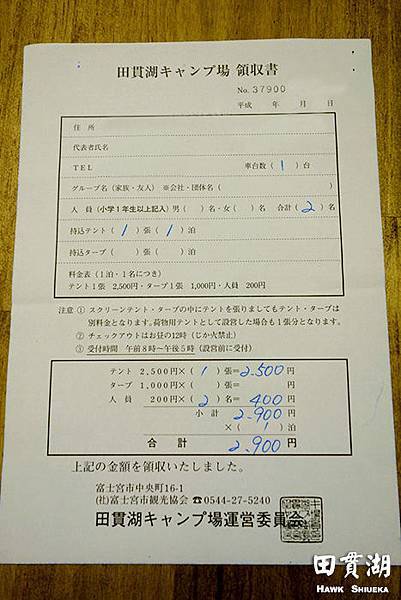 田貫湖キャンプ場 領収書
No. 37900
平成　　年　　月　　日
住所
代表者氏名
TEL　　車台数（ 1 ）台
グループ名（家族・友人）※会社・団体名（　　）
人員（小学1年生以上記入）男（　）名・女（　）名　合計（ 2 ）名
持込テント（ 1 ）張（ 1 ）泊
持込タープ（　）張（　）泊
料金表（1泊・1名につき）
テント1張 2,500円・タープ1張 1,000円・人員 200円
注意 ① スクリーンテント・タープの中にテントを張りましてもテント・タープは
別料金となります。荷物用テントとして設営した場合も1張分となります。
② チェックアウトはお昼の12時（じか火禁止）
③ 受付時間 午前8時〜午後5時（設営前に受付）
テント 2,500円×（ 1 ）張＝2,500円
タープ 1,000円×（　）張＝　円
人員 200円×（ 2 ）名＝400円
小計 2,900円
×（ 1 ）泊
合計 2,900円
上記の金額を領収いたしました。
富士宮市中央町16-1
(社)富士宮市観光協会 ☎0544-27-5240
田貫湖キャンプ場運営委員会
田貫湖
HAWK SHIUEKA